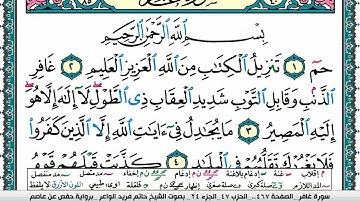 بِسْمِ ٱللَّهِ ٱلرَّحْمَٰنِ ٱلرَّحِيمِ
حمٓ ١ تَنزِيلُ ٱلْكِتَٰبِ مِنَ ٱللَّهِ ٱلْعَزِيزِ ٱلْعَلِيمِ ٢ غَافِرِ
ٱلذَّنۢبِ وَقَابِلِ ٱلتَّوْبِ شَدِيدِ ٱلْعِقَابِ ذِى ٱلطَّوْلِ لَآ إِلَٰهَ إِلَّا هُوَ
إِلَيْهِ ٱلْمَصِيرُ ٣ مَا يُجَٰدِلُ فِىٓ ءَايَٰتِ ٱللَّهِ إِلَّا ٱلَّذِينَ كَفَرُوا۟
فَلَا يَغْرُرْكَ تَقَلُّبُهُمْ فِى ٱلْبِلَٰدِ ٤ كَذَّبَتْ قَبْلَهُمْ قَوْمُ
سورة غافر الصفحة ٤٦٧ الجزء ٢٤ بصوت الشيخ حاتم فريد الواعر برواية حفص عن عاصم